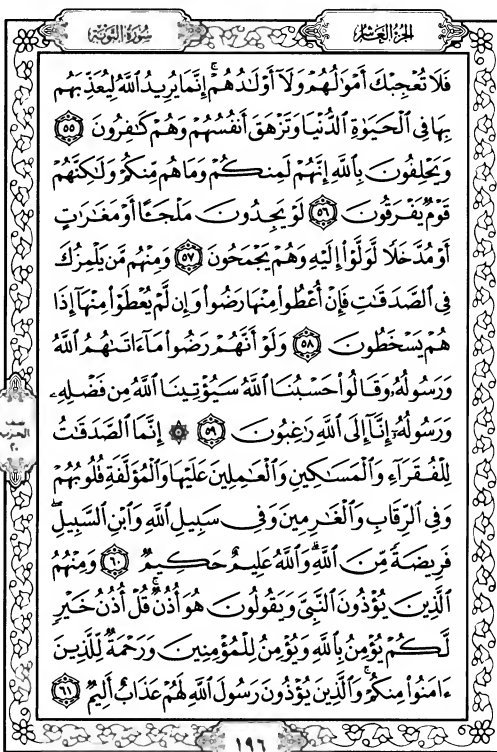 سُورَةُ التَّوْبَةِ
الجُزءُ العَاشِرُ
فَلَا تُعْجِبْكَ أَمْوَٰلُهُمْ وَلَآ أَوْلَـٰدُهُمْ ۚ إِنَّمَا يُرِيدُ ٱللَّهُ لِيُعَذِّبَهُم
بِهَا فِى ٱلْحَيَوٰةِ ٱلدُّنْيَا وَتَزْهَقَ أَنفُسُهُمْ وَهُمْ كَـٰفِرُونَ ٥٥
وَيَحْلِفُونَ بِٱللَّهِ إِنَّهُمْ لَمِنكُمْ وَمَا هُم مِّنكُمْ وَلَـٰكِنَّهُمْ
قَوْمٌ يَفْرَقُونَ ٥٦ لَوْ يَجِدُونَ مَلْجَـًٔا أَوْ مَغَـٰرَٰتٍ
أَوْ مُدَّخَلًا لَّوَلَّوْا۟ إِلَيْهِ وَهُمْ يَجْمَحُونَ ٥٧ وَمِنْهُم مَّن يَلْمِزُكَ
فِى ٱلصَّدَقَـٰتِ فَإِنْ أُعْطُوا۟ مِنْهَا رَضُوا۟ وَإِن لَّمْ يُعْطَوْا۟ مِنْهَآ إِذَا
هُمْ يَسْخَطُونَ ٥٨ وَلَوْ أَنَّهُمْ رَضُوا۟ مَآ ءَاتَىٰهُمُ ٱللَّهُ
وَرَسُولُهُۥ وَقَالُوا۟ حَسْبُنَا ٱللَّهُ سَيُؤْتِينَا ٱللَّهُ مِن فَضْلِهِۦ
وَرَسُولُهُۥٓ إِنَّآ إِلَى ٱللَّهِ رَٰغِبُونَ ٥٩ ۞ إِنَّمَا ٱلصَّدَقَـٰتُ
لِلْفُقَرَآءِ وَٱلْمَسَـٰكِينِ وَٱلْعَـٰمِلِينَ عَلَيْهَا وَٱلْمُؤَلَّفَةِ قُلُوبُهُمْ
وَفِى ٱلرِّقَابِ وَٱلْغَـٰرِمِينَ وَفِى سَبِيلِ ٱللَّهِ وَٱبْنِ ٱلسَّبِيلِ ۖ
فَرِيضَةً مِّنَ ٱللَّهِ ۗ وَٱللَّهُ عَلِيمٌ حَكِيمٌ ٦٠ وَمِنْهُمُ
ٱلَّذِينَ يُؤْذُونَ ٱلنَّبِىَّ وَيَقُولُونَ هُوَ أُذُنٌ ۚ قُلْ أُذُنُ خَيْرٍ
لَّكُمْ يُؤْمِنُ بِٱللَّهِ وَيُؤْمِنُ لِلْمُؤْمِنِينَ وَرَحْمَةٌ لِّلَّذِينَ
ءَامَنُوا۟ مِنكُمْ ۚ وَٱلَّذِينَ يُؤْذُونَ رَسُولَ ٱللَّهِ لَهُمْ عَذَابٌ أَلِيمٌ ٦١
نصف
الحزب
٢٠
١٩٦